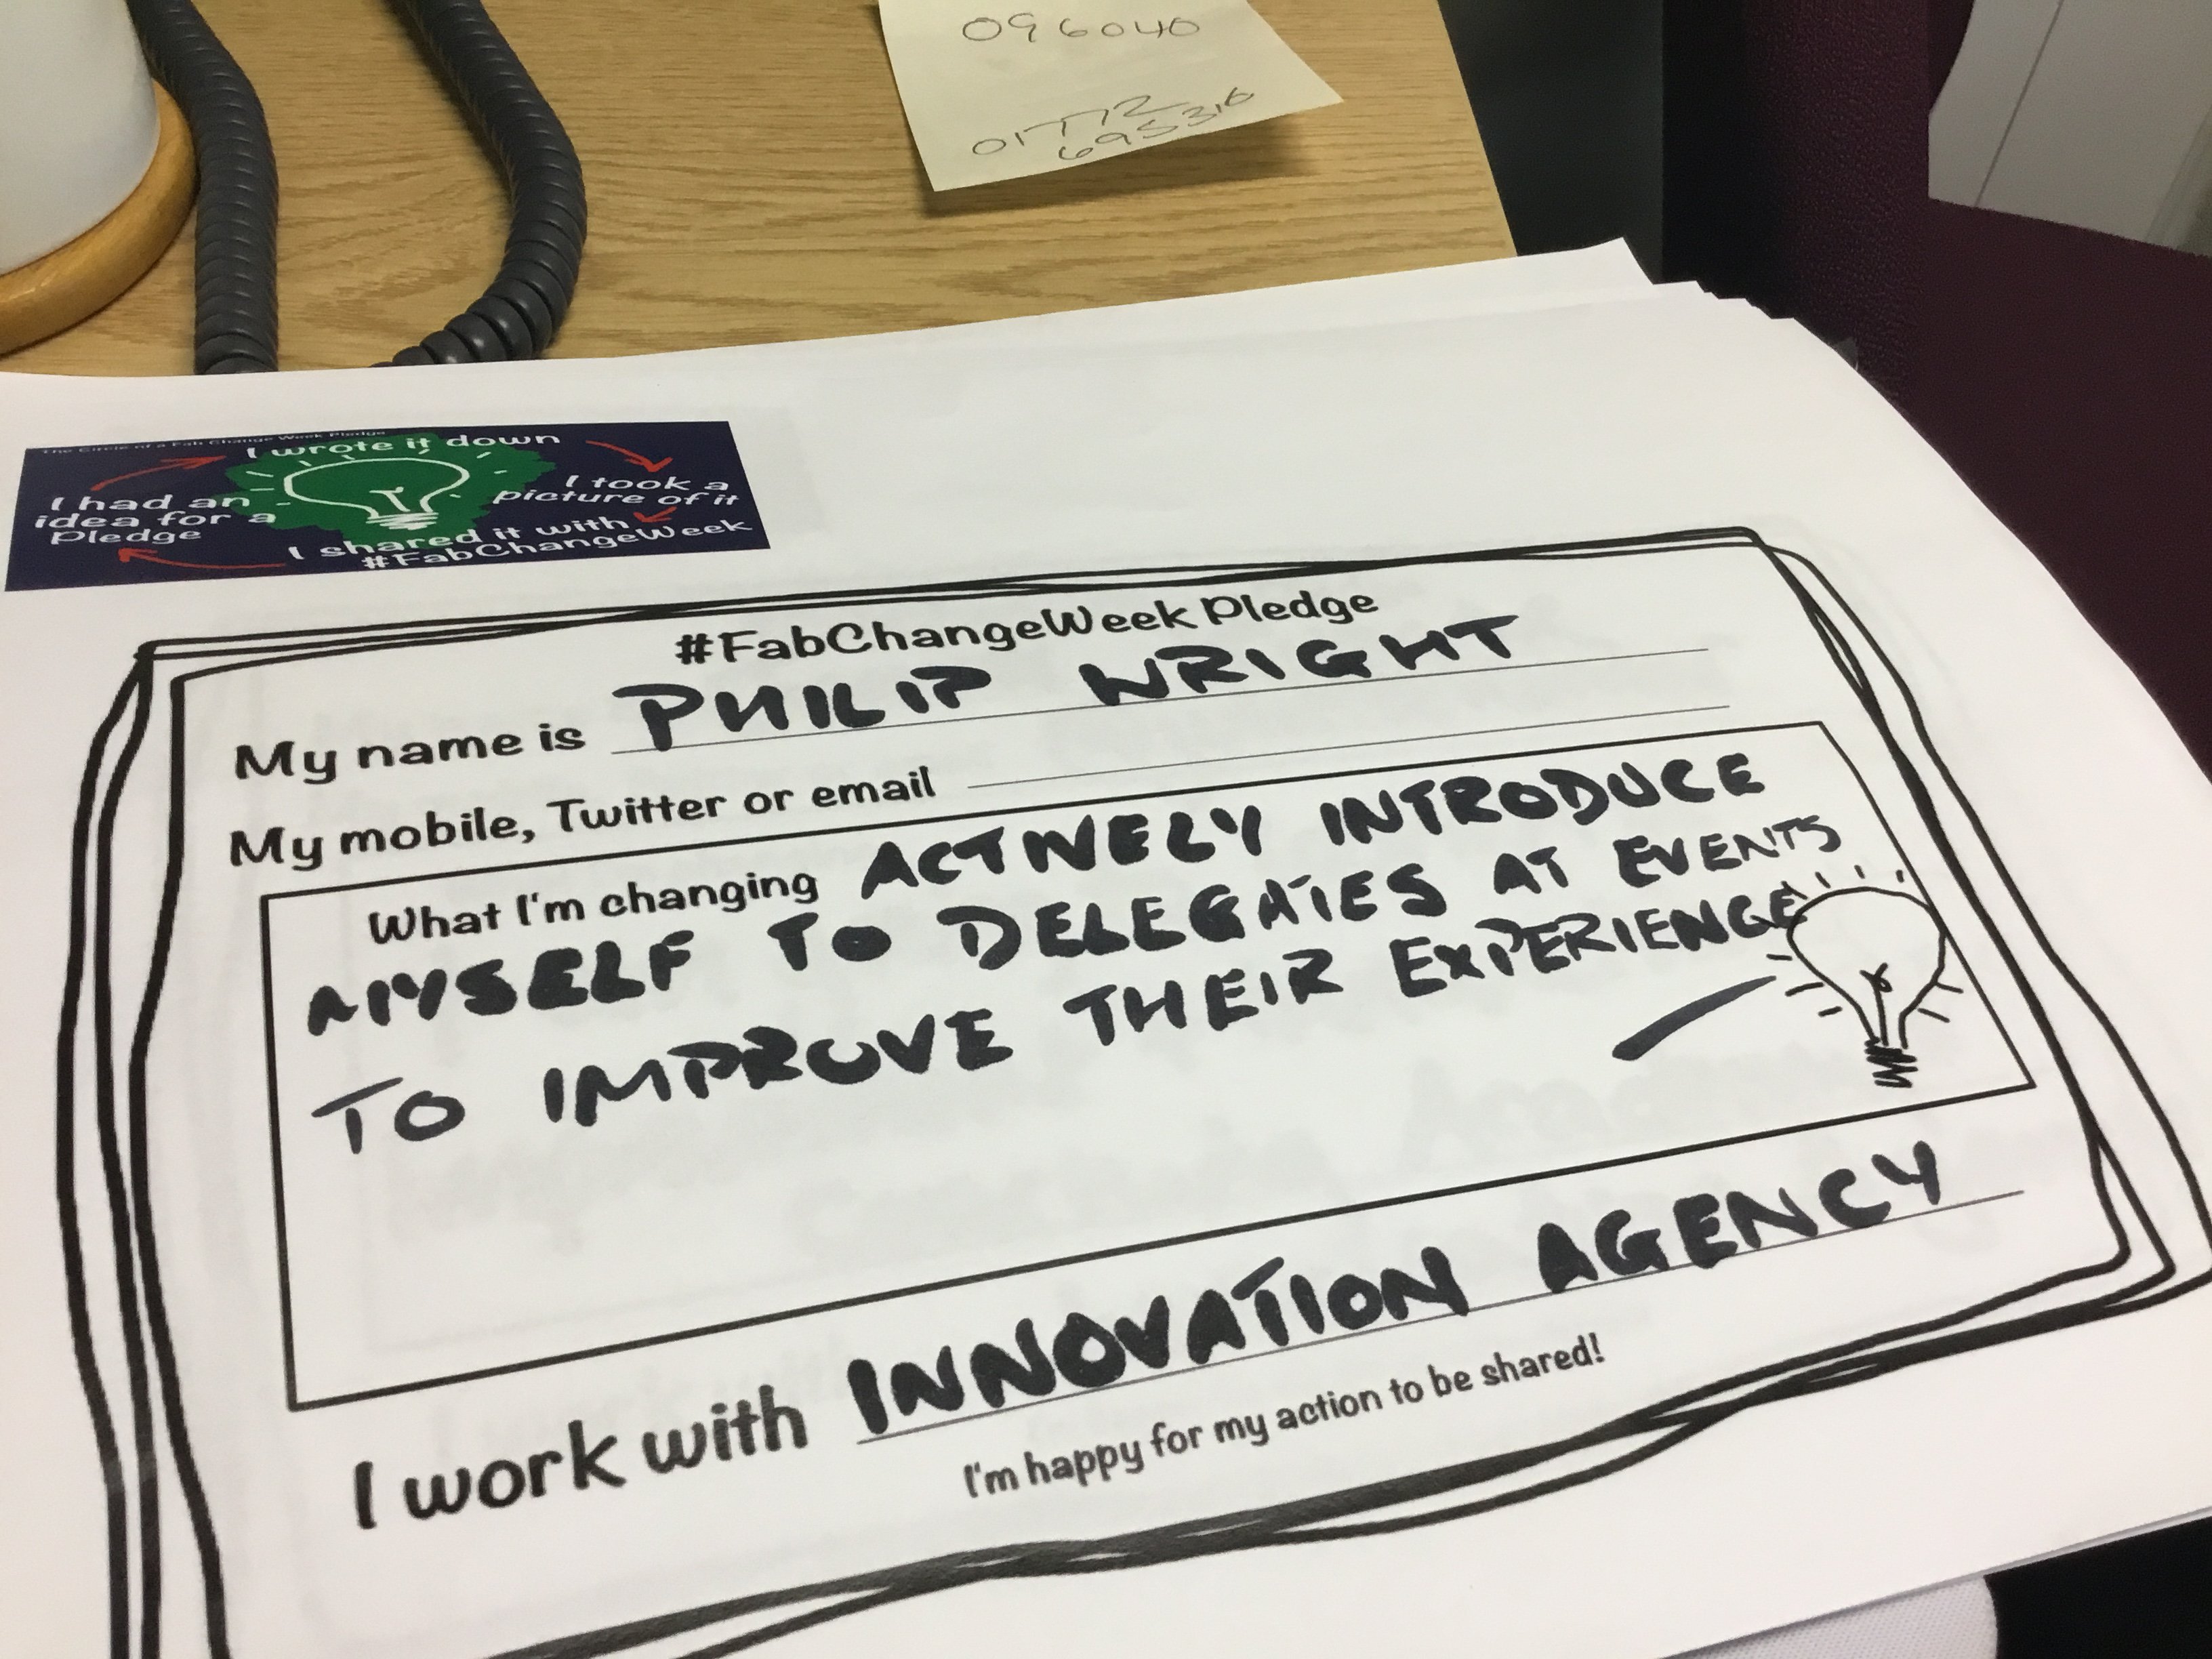 096040
01772
695316
The Circle of a Fab Change Week Pledge
I wrote it down
I took a
picture of it
I had an
idea for a
Pledge
I shared it with
#FabChangeWeek
#FabChangeWeek Pledge
My name is PHILIP WRIGHT
My mobile, Twitter or email
What I'm changing ACTIVELY INTRODUCE
MYSELF TO DELEGATES AT EVENTS
TO IMPROVE THEIR EXPERIENCE
I work with INNOVATION AGENCY
I'm happy for my action to be shared!